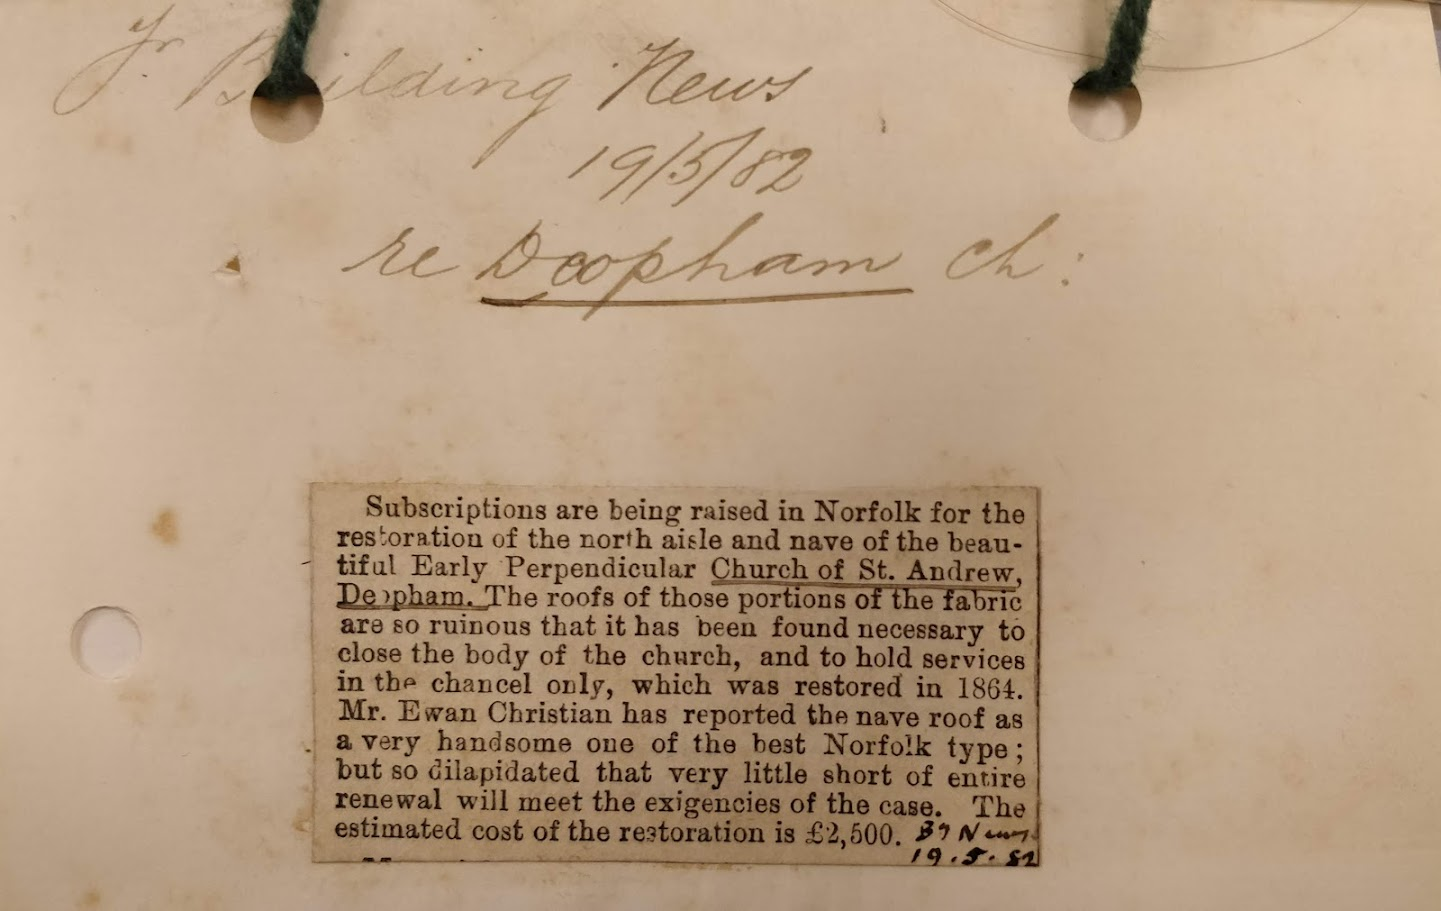 Fr. Building News
19/5/82
re Deopham Ch:
Subscriptions are being raised in Norfolk for the
restoration of the north aisle and nave of the beau-
tiful Early Perpendicular Church of St. Andrew,
Deopham. The roofs of those portions of the fabric
are so ruinous that it has been found necessary to
close the body of the church, and to hold services
in the chancel only, which was restored in 1864.
Mr. Ewan Christian has reported the nave roof as
a very handsome one of the best Norfolk type;
but so dilapidated that very little short of entire
renewal will meet the exigencies of the case. The
estimated cost of the restoration is £2,500. Bg News
19.5.82